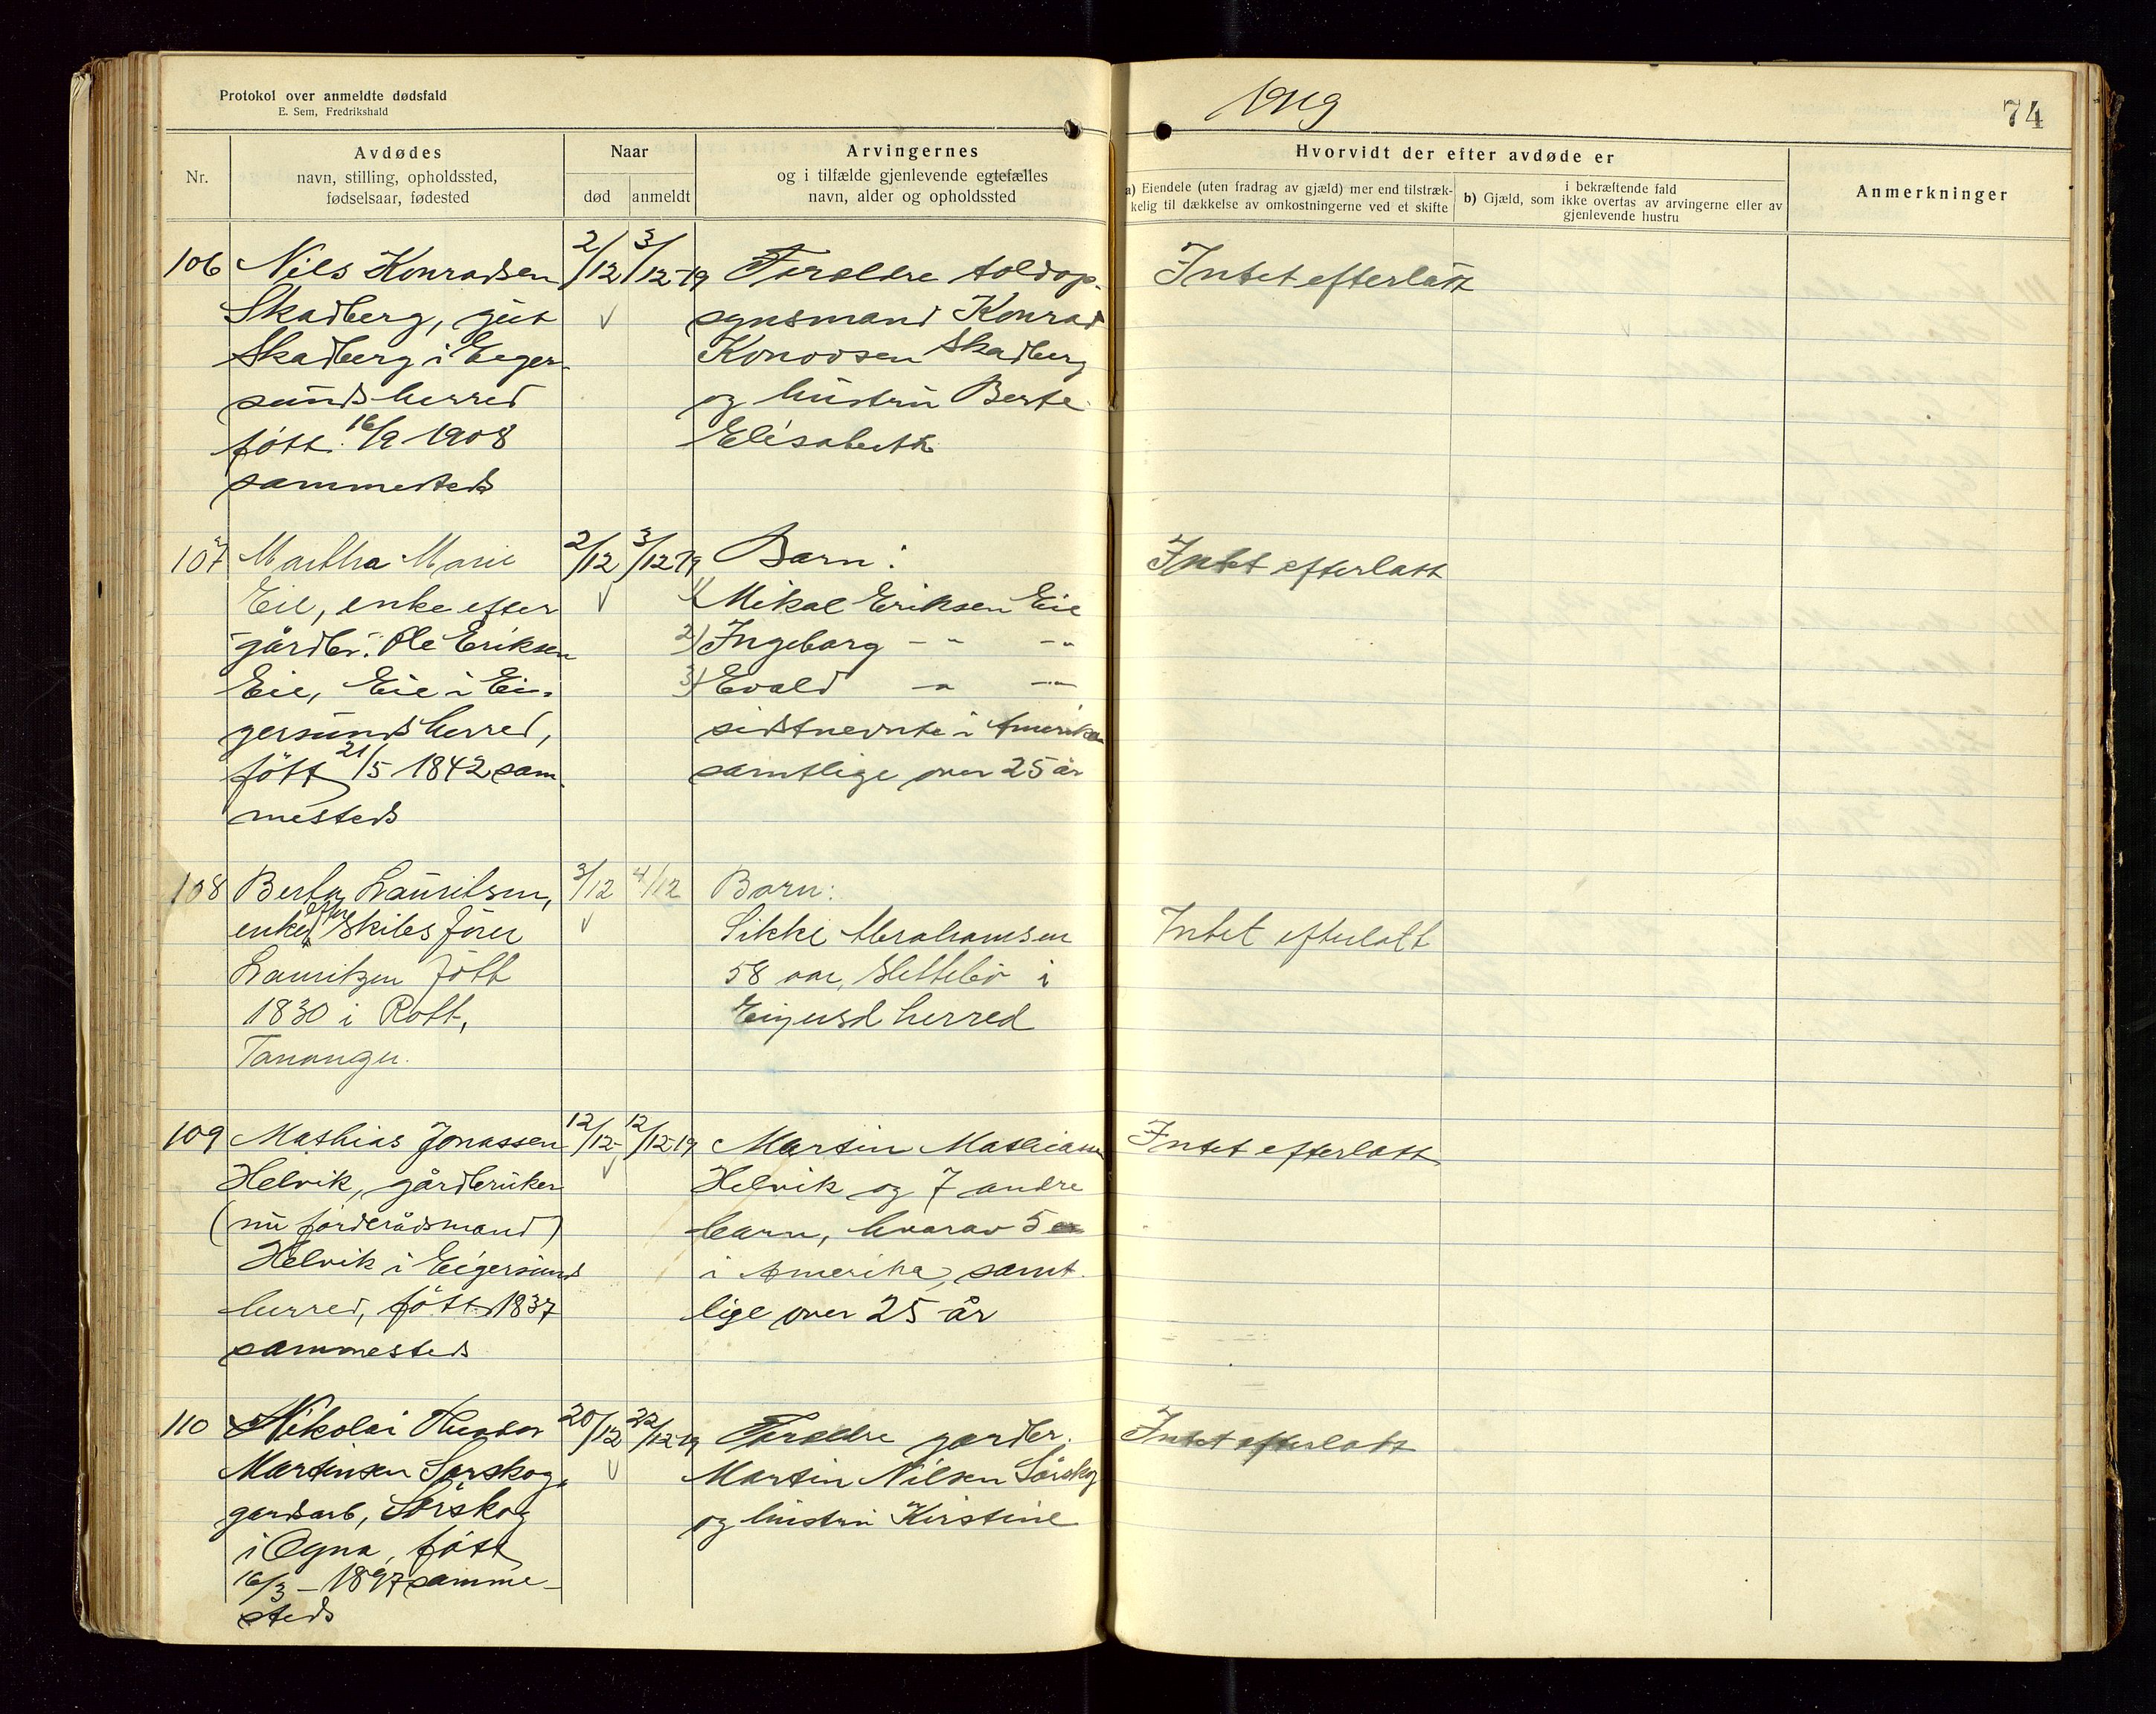 Protokol over anmeldte dødsfald
E. Sem, Fredrikshald
1919
74
Nr.
Avdødes
navn, stilling, opholdssted,
fødselsaar, fødested
Naar
død
anmeldt
Arvingernes
og i tilfælde gjenlevende egtefælles
navn, alder og opholdssted
Hvorvidt der efter avdøde er
a) Eiendele (uten fradrag av gjæld) mer end tilstræk-
kelig til dækkelse av omkostningerne ved et skifte
i bekræftende fald
b) Gjæld, som ikke overtas av arvingerne eller av
gjenlevende hustru
Anmerkninger
106
Nils Konradsen
Skadberg, gut
Skadberg i Eiger-
sunds herred
født 16/9 1908
sammesteds
2/12
3/12-19
Foreldre toldop-
synsmand Konrad
Skadberg
og hustru Berte
Elisabeth
Intet efterlatt
107
Martha Marie
Eie, enke efter
gårdbr. Ole Eriksen
Eie, Eie i Ei-
gersunds herred,
født 21/5 1842 sam-
mesteds
2/12
3/12-19
Barn:
1) Mikal Eriksen Eie
2) Ingeborg - " - "
3) Evald - " - "
sidstnevnte i Amerika
samtlige over 25 år
Intet efterlatt
108
Berta Lauritsen,
enke efter Skibsfører
Lauritzen født
1830 i Rott,
Tananger.
3/12
4/12
Barn:
Sikke Abrahamsen
58 aar, Slettebø i
Eigersd herred
Intet efterlatt
109
Mathias Jonassen
Helvik, gårdbruker
(nu førderådsmand)
Helvik i Eigersunds
herred, født 1837
sammesteds
12/12-
12/12-19
Martin Mathiasen
Helvik og 7 andre
barn, hvorav 5
i Amerika, samt-
lige over 25 år
Intet efterlatt
110
Nikolai Theodor
Martinsen Sørskog,
gardsarb, Sørskog
i Ogna, født
16/3 - 1897 samme-
steds
20/12
22/12-19
Foreldre gardbr.
Martin Nilsen Sørskog
og hustru Kirstine
Intet efterlatt